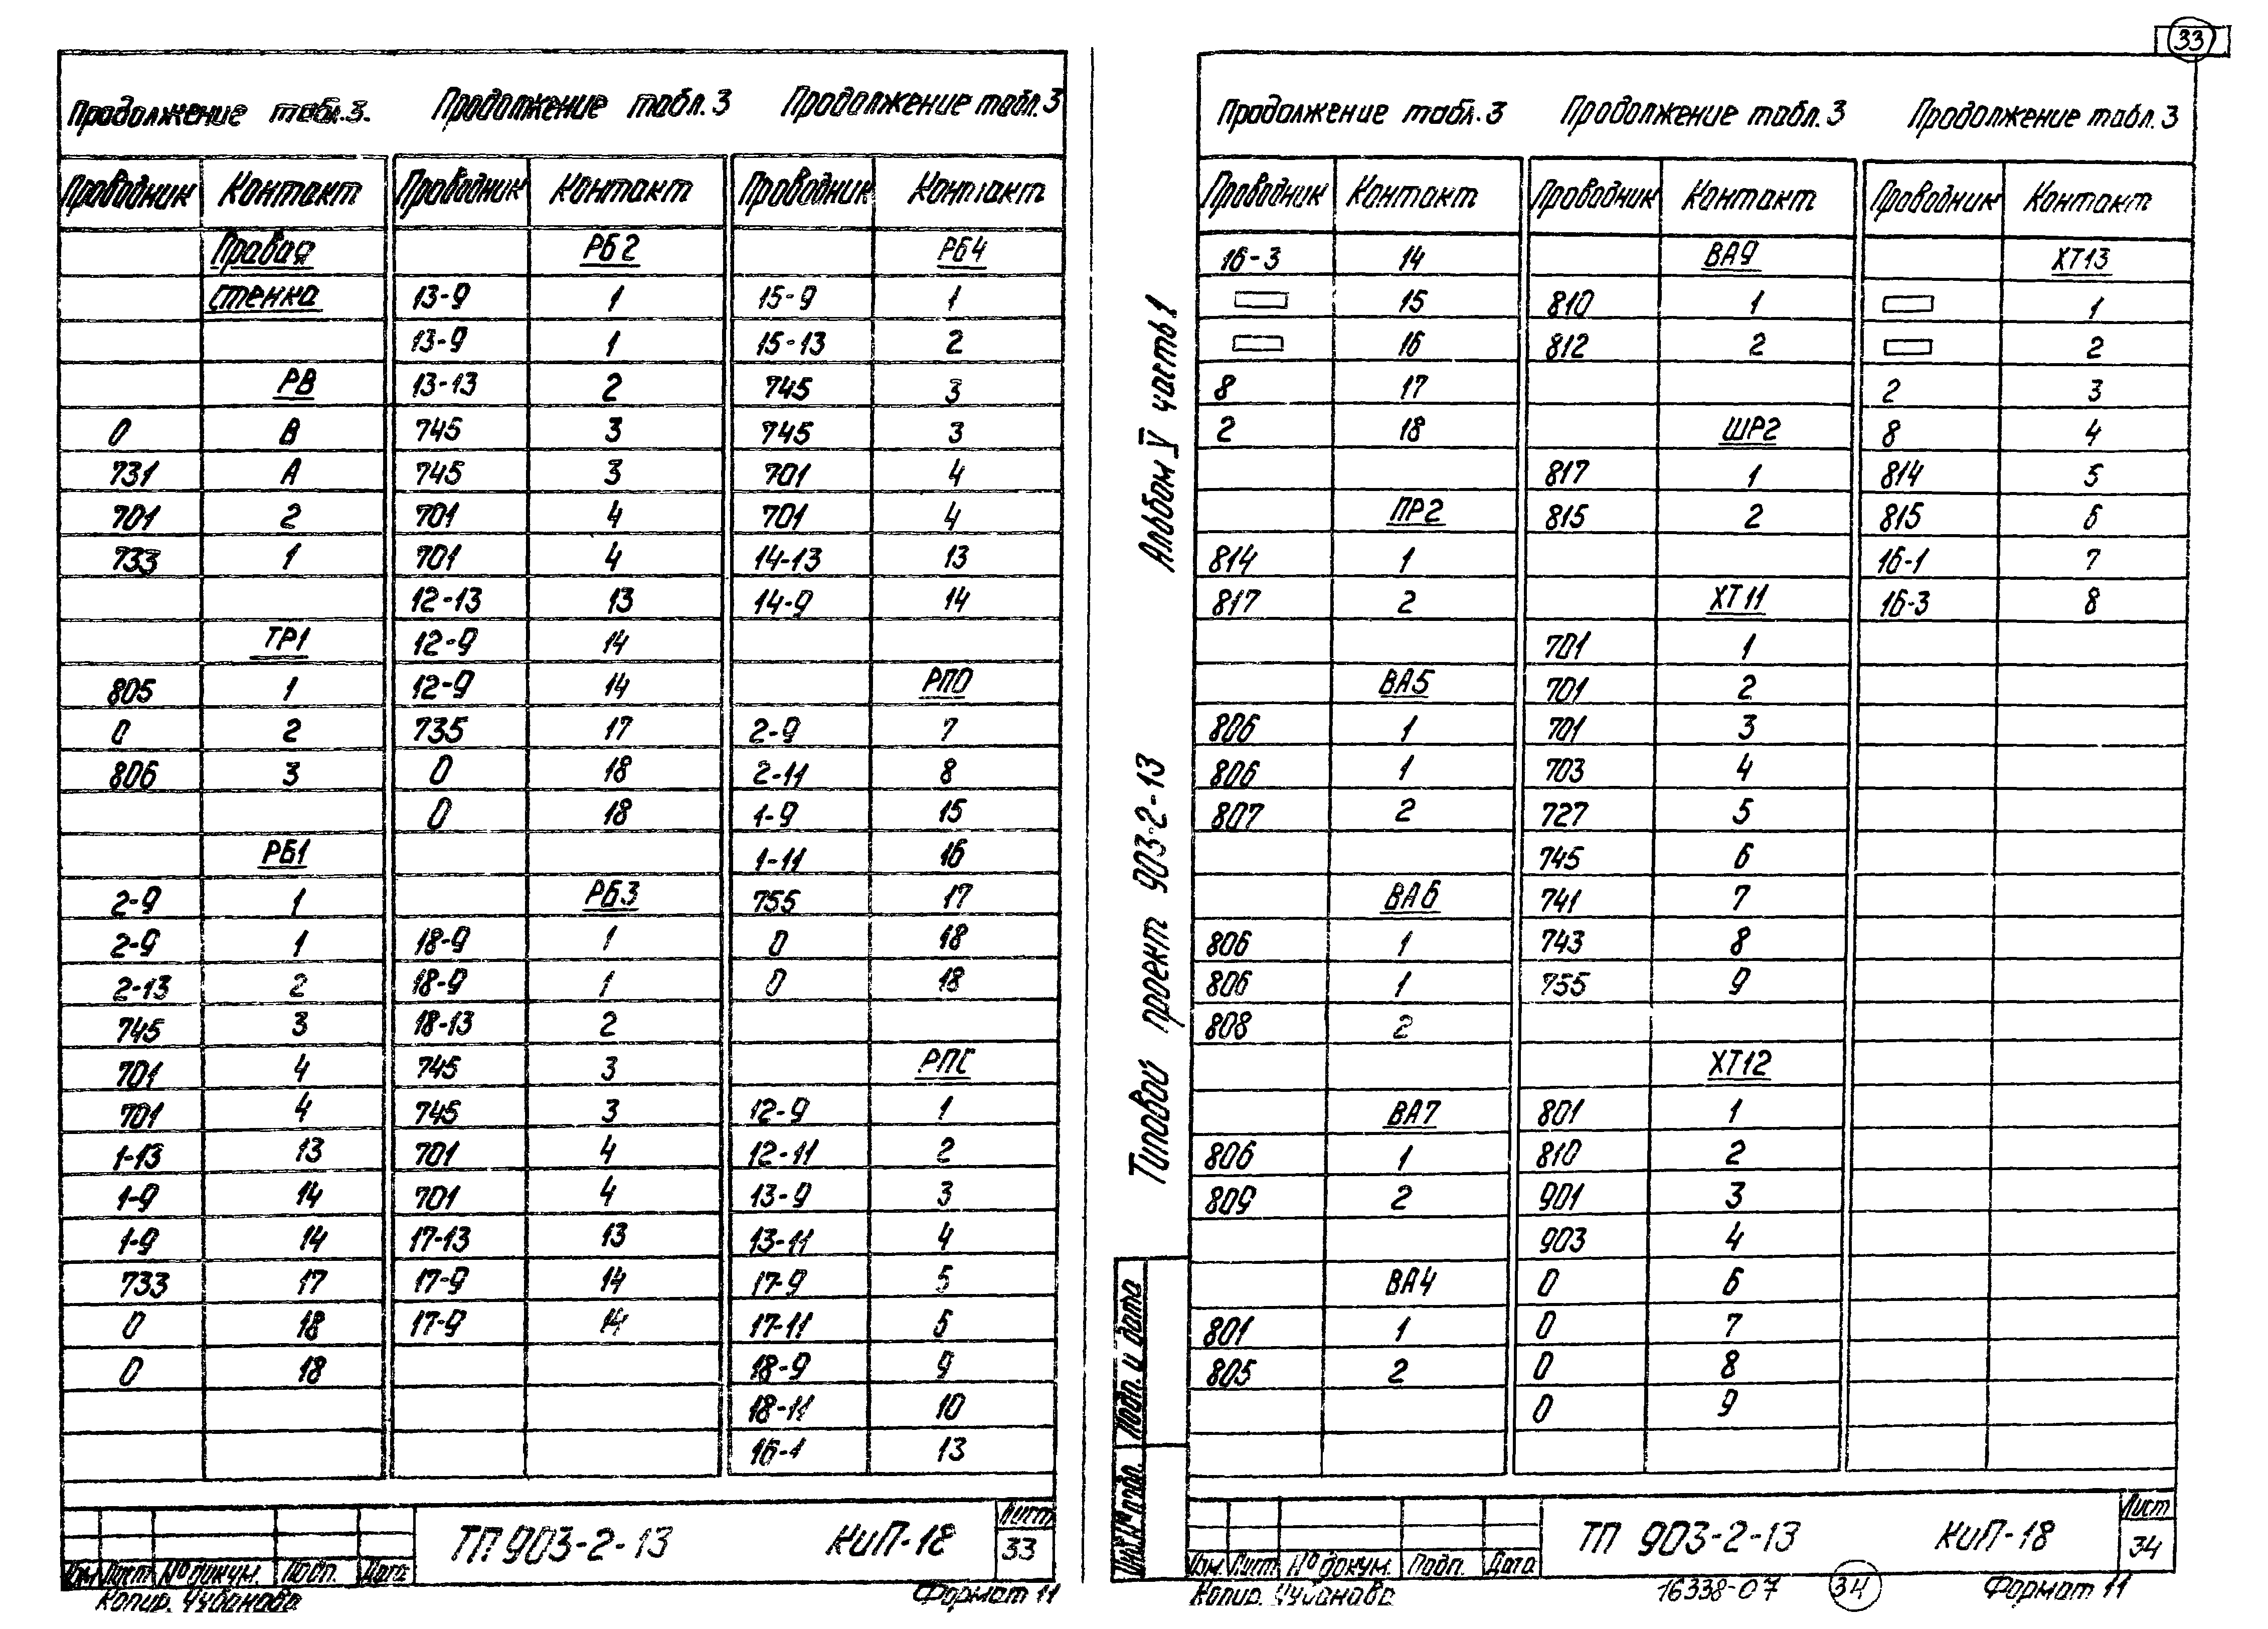 33
Продолжение табл.3. Продолжение табл.3 Продолжение табл.3
Проводник Контакт Проводник Контакт Проводник Контакт
Правая РБ2 РБ4
стенка 13-9 1 15-9 1
13-9 1 15-13 2
РВ 13-13 2 745 3
0 В 745 3 745 3
731 А 745 3 701 4
701 2 701 4 701 4
733 1 701 4 14-13 13
12-13 13 14-9 14
ТР1 12-9 14
805 1 12-9 14 РПО
0 2 735 17 2-9 7
806 3 0 18 2-11 8
0 18 1-9 15
РБ1 1-11 16
2-9 1 РБ3 755 17
2-9 1 18-9 1 0 18
2-13 2 18-9 1 0 18
745 3 18-13 2
701 4 745 3 РПС
701 4 745 3 12-9 1
1-13 13 701 4 12-11 2
1-9 14 701 4 13-9 3
1-9 14 17-13 13 13-11 4
733 17 17-9 14 17-9 5
0 18 17-9 14 17-11 5
0 18 18-9 9
18-11 10
16-1 13
ТП 903-2-13 КиП-18 Лист
33
Изм Лист № докум. Подп. Дата
Копир. Чубанова Формат 11
Типовой проект 903-2-13 Альбом V часть 1
Продолжение табл.3 Продолжение табл.3 Продолжение табл.3
Проводник Контакт Проводник Контакт Проводник Контакт
16-3 14 ВА9 ХТ13
15 810 1 1
16 812 2 2
8 17 2 3
2 18 ШР2 8 4
817 1 814 5
ПР2 815 2 815 6
814 1 16-1 7
817 2 ХТ11 16-3 8
701 1
ВА5 701 2
806 1 701 3
806 1 703 4
807 2 727 5
745 6
ВА6 741 7
806 1 743 8
806 1 755 9
808 2
ХТ12
ВА7 801 1
806 1 810 2
809 2 901 3
903 4
ВА4 0 6
801 1 0 7
805 2 0 8
0 9
Подп. и дата
Инв № подл.
ТП 903-2-13 КиП-18 Лист
34
Изм Лист № докум. Подп. Дата
Копир. Чубанова 16338-07 34 Формат 11